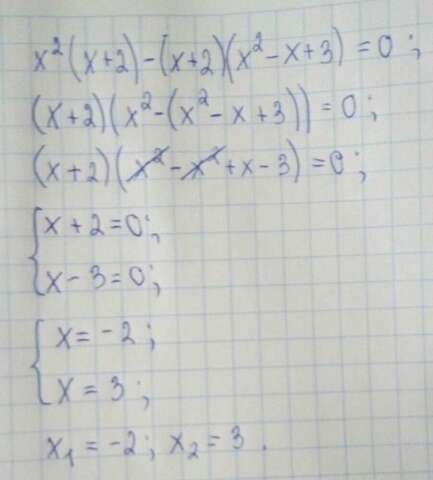 x²(x+2)-(x+2)(x²-x+3)=0;
(x+2)(x²-(x²-x+3))=0;
(x+2)(x²-x²+x-3)=0;
{x+2=0;
x-3=0;
{x=-2;
x=3;
x₁=-2; x₂=3.